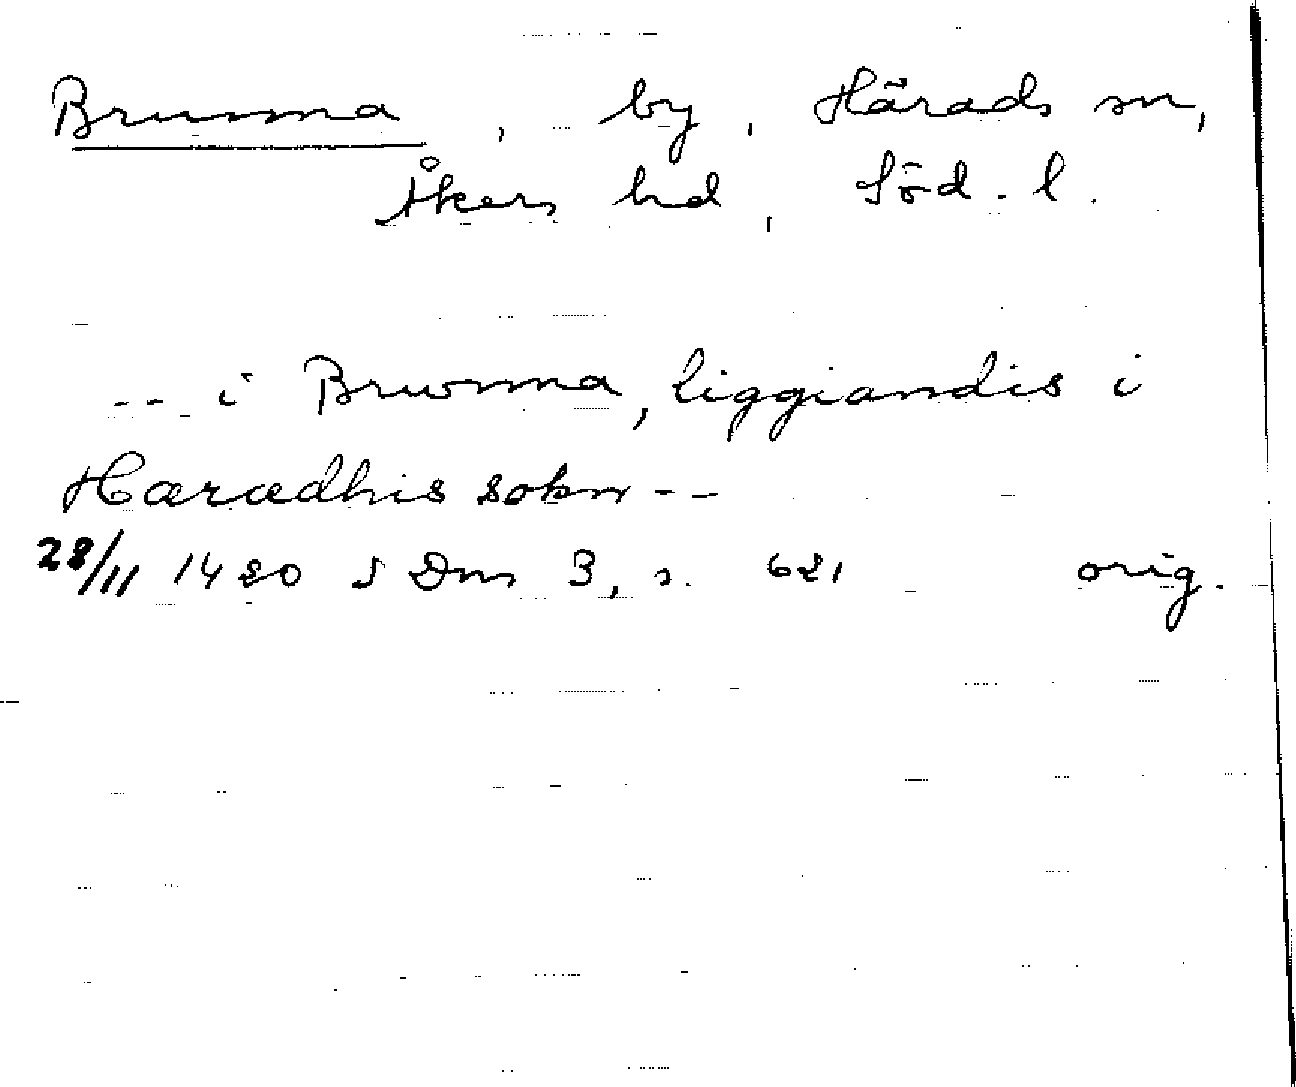 Brunna, by, Härads sn,
Åkers hd, Söd. l.
--- i Brwnna, liggiandis i
Haradhis sokn --
28/11 1420 SDns 3, s. 621 orig.